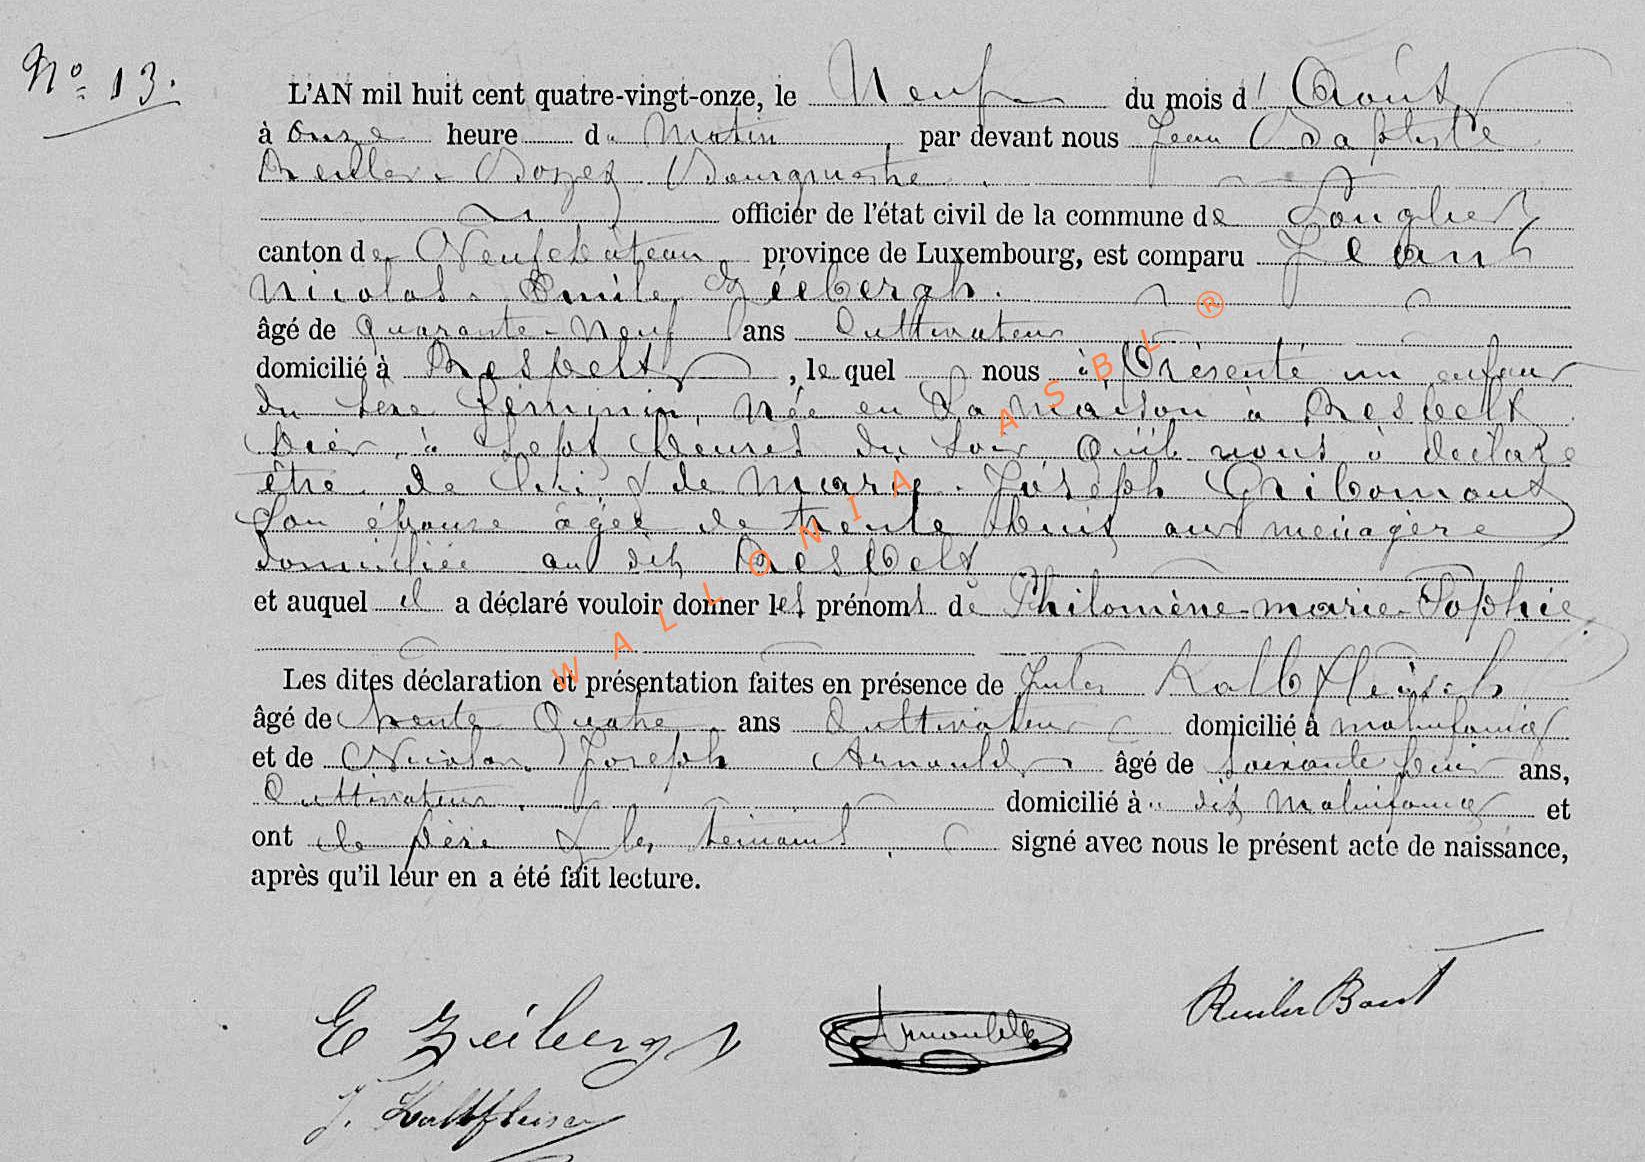 No 13.
L'AN mil huit cent quatre-vingt-onze, le Neuf du mois d'Août
à onze heure du Matin par devant nous Jean Baptiste
Bourgmestre
officier de l'état civil de la commune de Longlier
canton de Neufchâteau province de Luxembourg, est comparu Jean
Nicolas Emile Zéebergh.
âgé de Quarante-Neuf ans Cultivateur
domicilié à Respelt, le quel nous à Présenté un enfant
du sexe féminin, née en Sa maison à Respelt
hièr, à Sept heures du soir, qu'il nous à déclaré
être de lui & de Marie-Joseph Gribomont
Son épouse âgée de trente huit ans ménagère
domiciliée au dit Respelt
et auquel il a déclaré vouloir donner les prénoms de Philomène-marie-Sophie.
Les dites déclaration et présentation faites en présence de Jules Kalbfleisch
âgé de trente Quatre ans Cultivateur domicilié à malmaison
et de Nicolas Joseph Arnould âgé de soixante huit ans,
Cultivateur. domicilié à dit et
ont le père & les témoins signé avec nous le présent acte de naissance,
après qu'il leur en a été fait lecture.
WALLONIA ASBL ®
E Zeiberg Arnould
J. Kalbfleisch